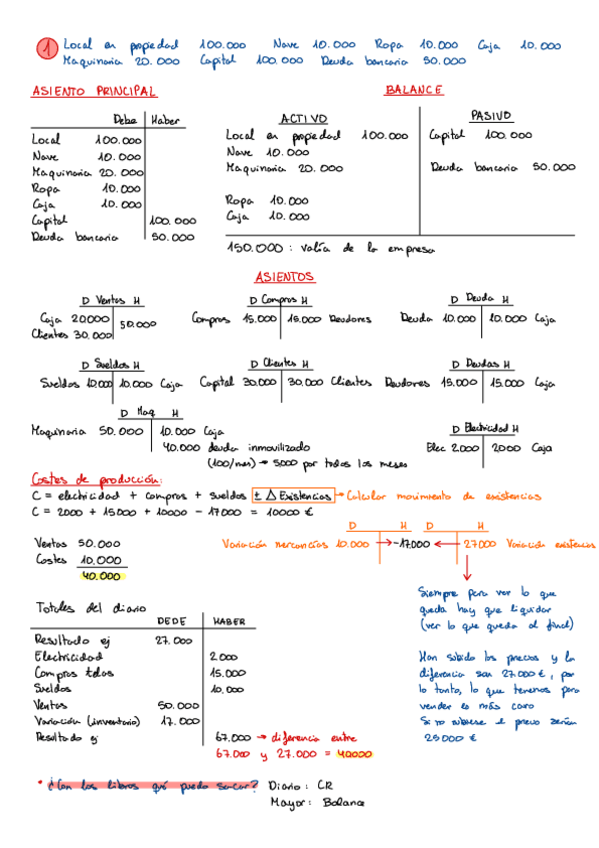 1 Local en propiedad 100.000 Nave 10.000 Ropa 10.000 Caja 10.000
Maquinaria 20.000 Capital 100.000 Deuda bancaria 50.000
ASIENTO PRINCIPAL
Debe Haber
Local 100.000
Nave 10.000
Maquinaria 20.000
Ropa 10.000
Caja 10.000
Capital 100.000
Deuda bancaria 50.000
BALANCE
ACTIVO PASIVO
Local en propiedad 100.000 Capital 100.000
Nave 10.000
Maquinaria 20.000 Deuda bancaria 50.000
Ropa 10.000
Caja 10.000
150.000: valía de la empresa
ASIENTOS
D Ventas H
Caja 20000 50.000
Clientes 30.000
D Compras H
Compras 15.000 15.000 Deudores
D Deuda H
Deuda 10.000 10.000 Caja
D Sueldos H
Sueldos 10.000 10.000 Caja
D Clientes H
Capital 30.000 30.000 Clientes
D Deudas H
Deudores 15.000 15.000 Caja
D Maq H
Maquinaria 50.000 10.000 Caja
40.000 deuda inmovilizado
(100/mes) → 5000 por todos los meses
D Electricidad H
Elec 2.000 2.000 Caja
Costes de producción:
C = electricidad + compras + sueldos ± Δ Existencias → Calcular movimiento de existencias
C = 2000 + 15000 + 10000 - 17000 = 10000 €
Ventas 50.000
Costes 10.000
40.000
D H D H
Variación mercancías 10.000 → -17.000 ← 27.000 Variación existencias
Siempre para ver lo que
queda hay que liquidar
(ver lo que queda al final)
Han subido los precios y la
diferencia son 27.000 €, por
lo tanto, lo que tenemos para
vender es más caro
Si no subiese el precio serían
25000 €
Totales del diario
DEDE HABER
Resultado ej 27.000
Electricidad 2.000
Compras telas 15.000
Sueldos 10.000
Ventas 50.000
Variación (inventario) 17.000
Resultado ej 67.000 → diferencia entre
67.000 y 27.000 = 40000
* ¿Con los libros qué puedo sacar? Diario: CR
Mayor: Balance